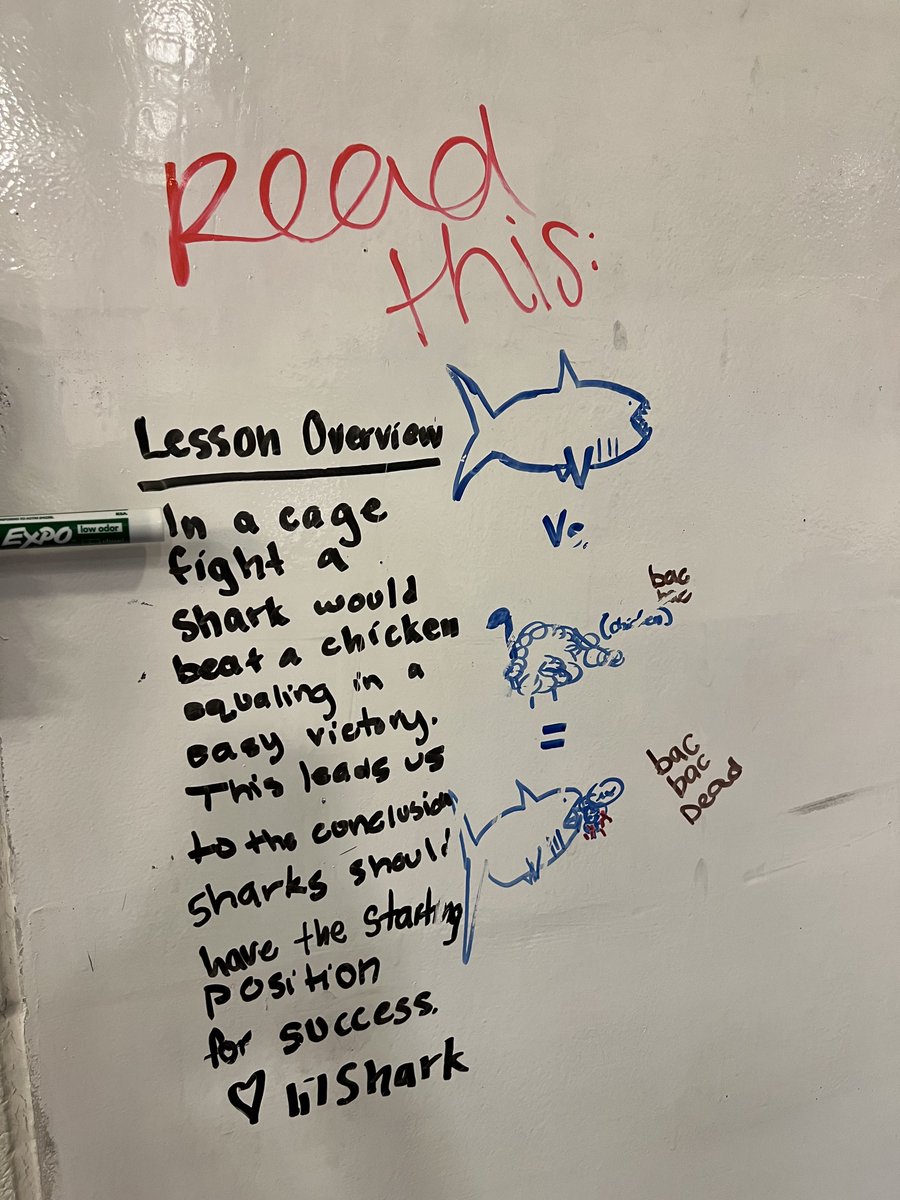 Read
this:
Lesson Overview
EXPO low odor
In a cage
fight a
Shark would
beat a chicken
equaling in a
easy victory.
This leads us
to the conclusion
sharks should
have the starting
position
for success.
♡ lil Shark
Vs.
bac
bac
(chicken)
=
bac
bac
Dead